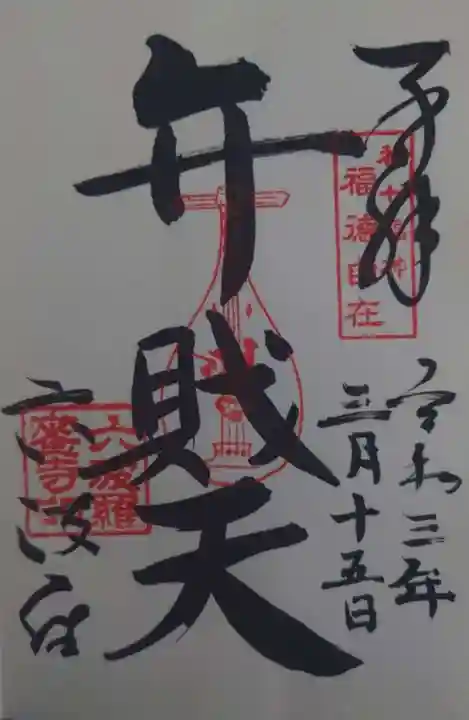 奉拝
福徳自在
令和三年
三月十五日
弁財天
六波羅
蜜寺
六波羅